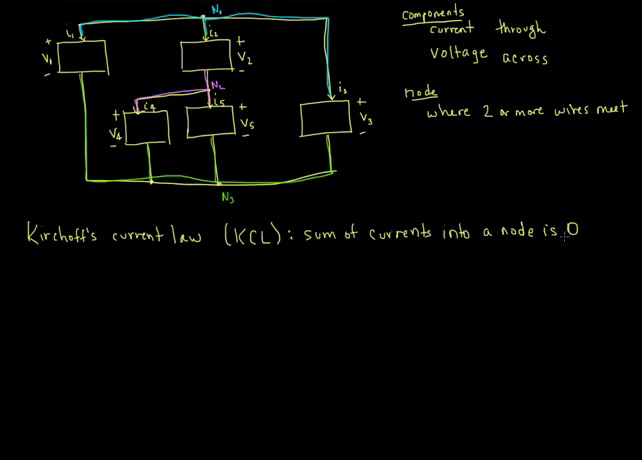 N₁
i₁
i₂
+
V₁
-
+
V₂
-
N₂
i₄
i₅
i₃
+
V₄
-
+
V₅
-
+
V₃
-
N₃
Components
current through
Voltage across
node
where 2 or more wires meet
Kirchoff's current law (KCL): sum of currents into a node is 0